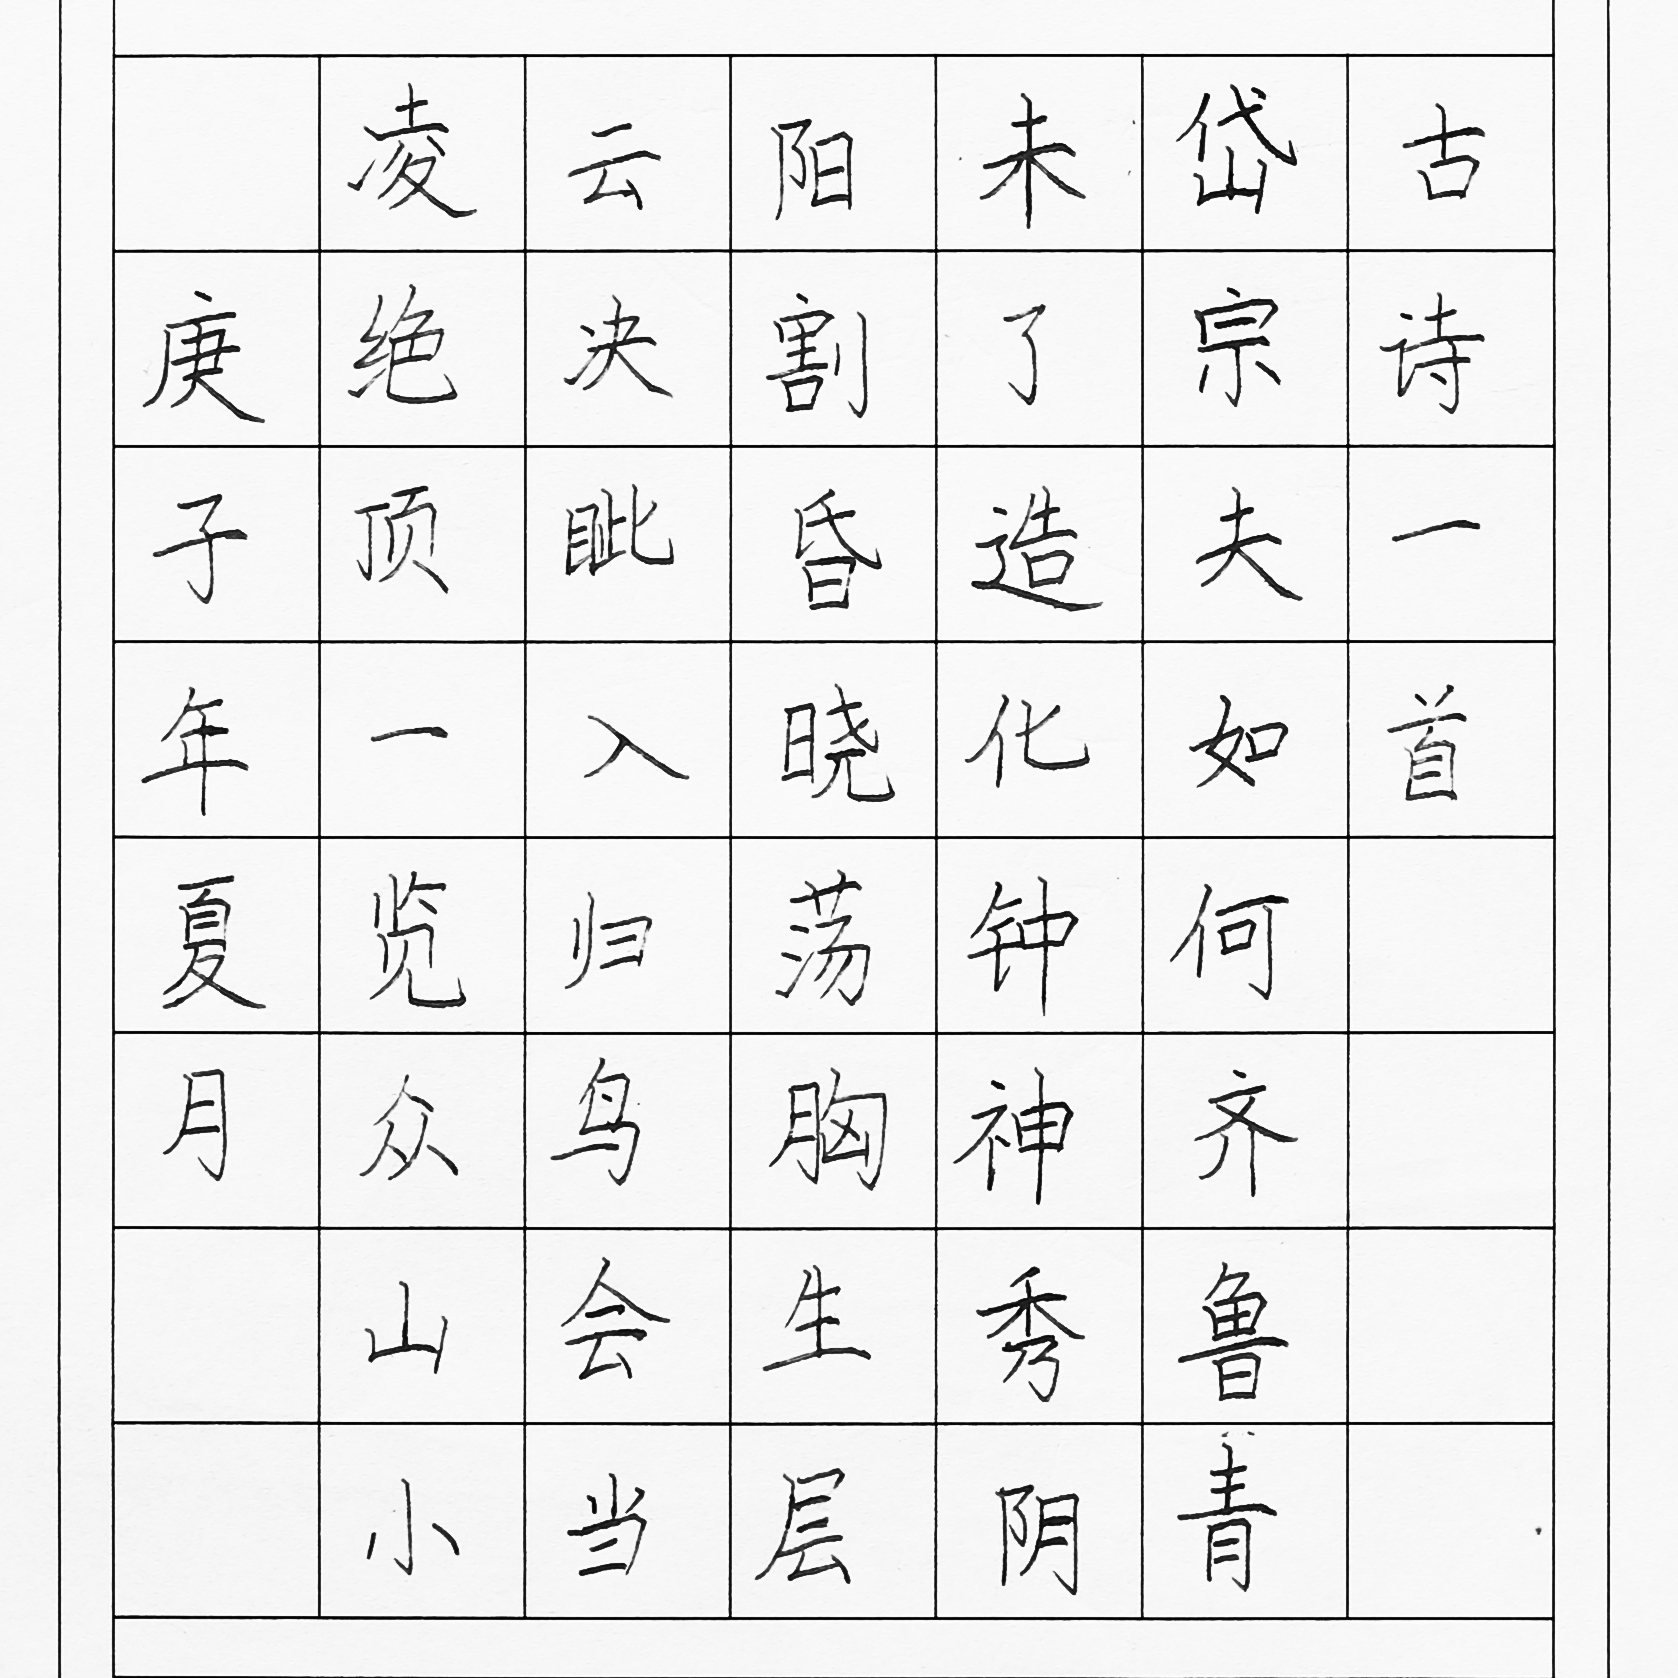 古诗一首
岱宗夫如何齐鲁青
未了造化钟神秀阴
阳割昏晓荡胸生层
云决眦入归鸟会当
凌绝顶一览众山小
庚子年夏月